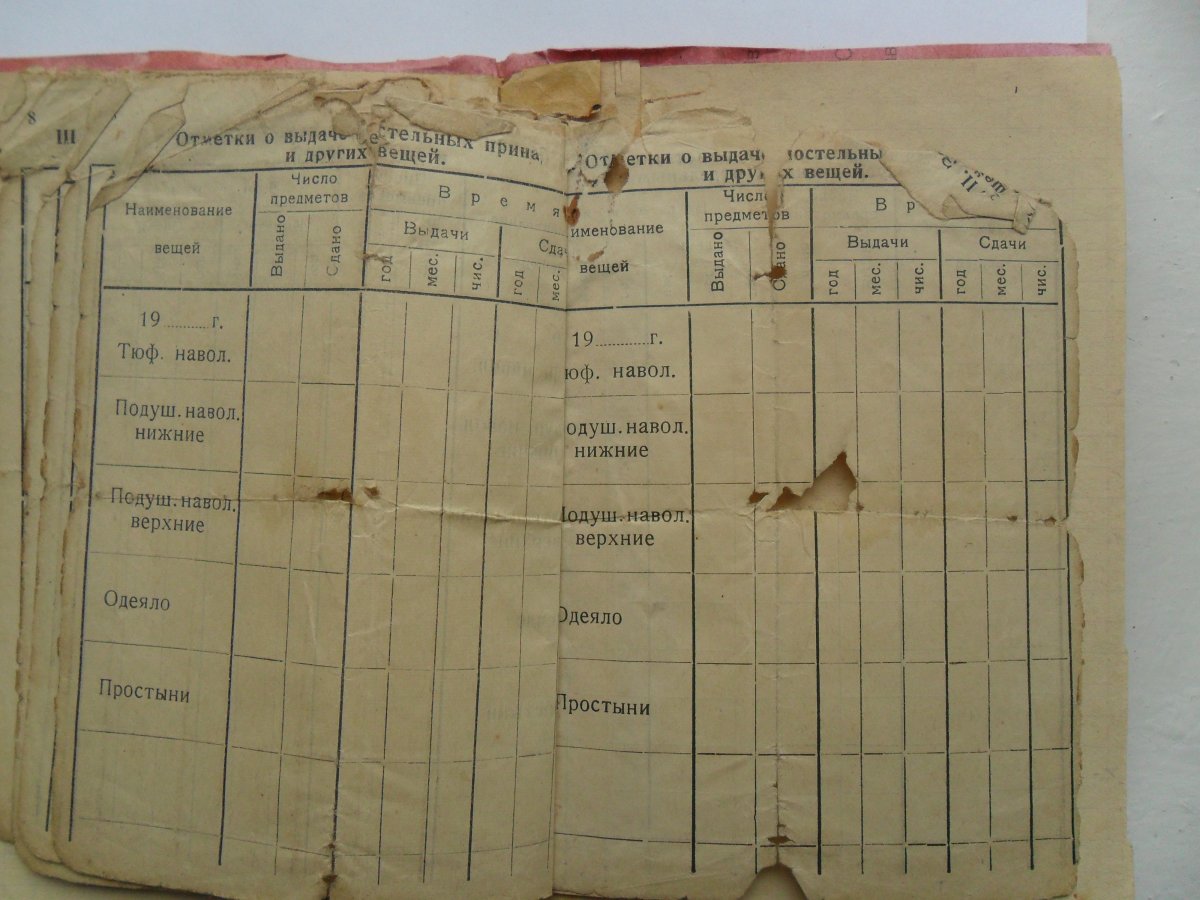 8
III
Отметки о выдаче постельных прина
и других вещей.
Наименование
вещей
Число
предметов
Выдано
Сдано
Время
Выдачи
Сдач
год
мес.
чис.
год
мес.
19 ........... г.
Тюф. навол.
Подуш. навол.
нижние
Подуш. навол.
верхние
Одеяло
Простыни
Отметки о выдаче постельны
и других вещей.
именование
вещей
Число
предметов
Выдано
Сдано
В р
Выдачи
Сдачи
год
мес.
чис.
год
мес.
чис.
19 ............. г.
юф. навол.
одуш. навол.
нижние
Подуш. навол.
верхние
Одеяло
Простыни